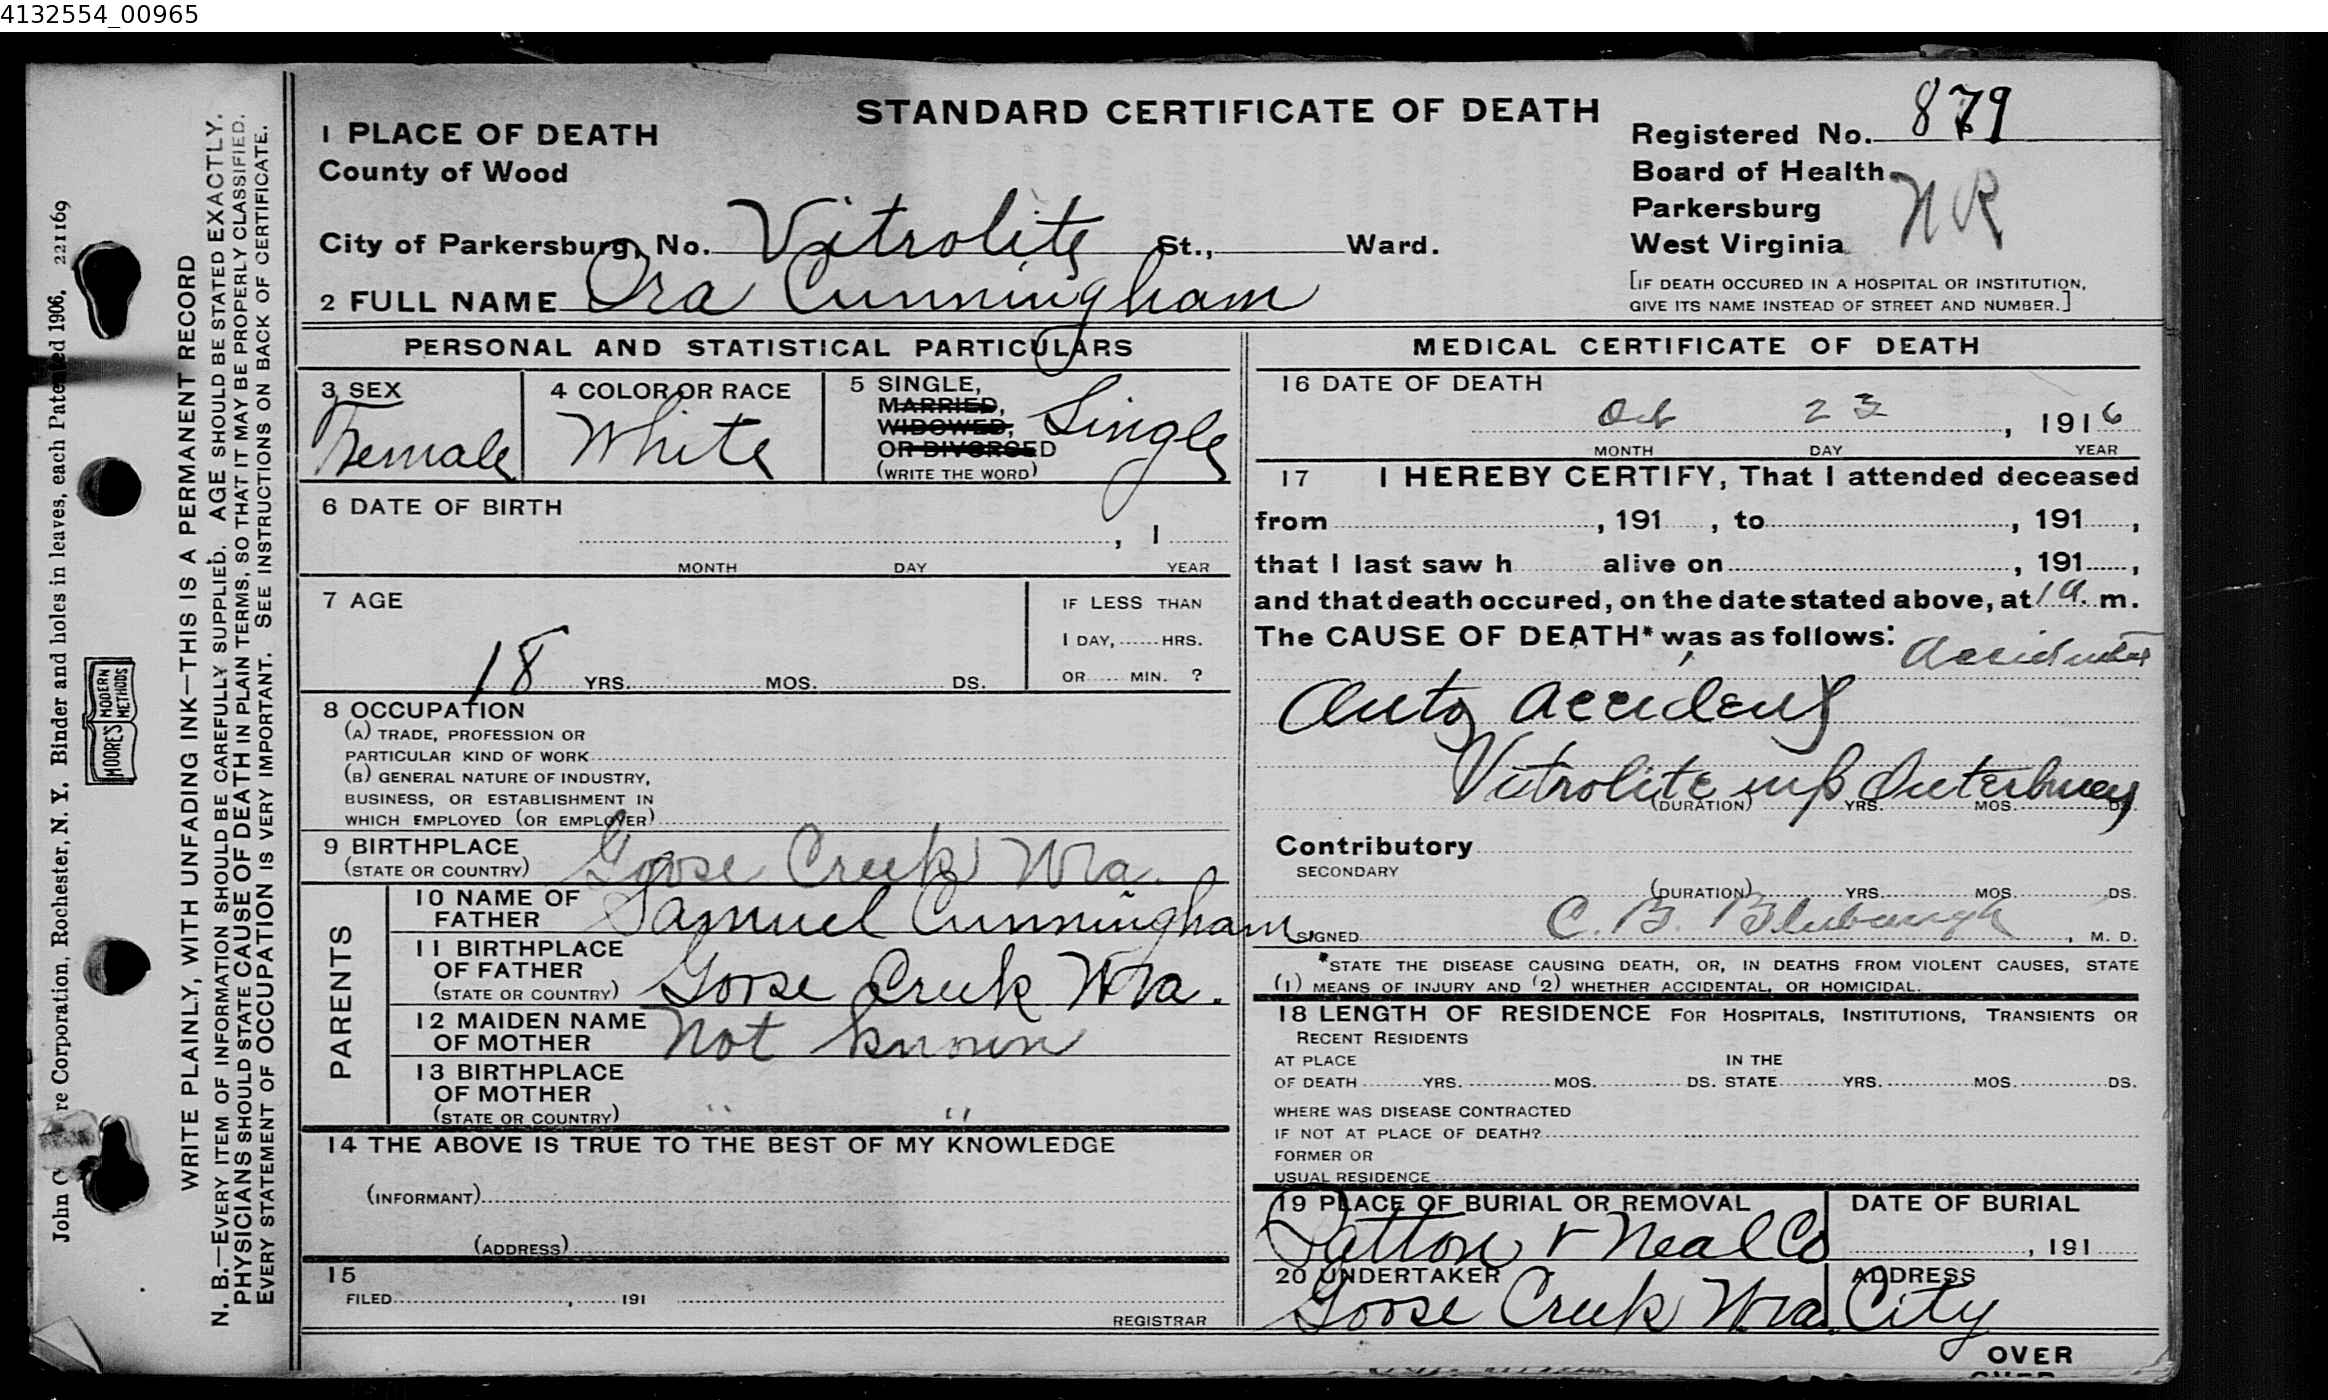 4132554_00965
John C re Corporation, Rochester, N. Y. Binder and holes in leaves, each Patented 1906, 221169
MOORE'S MODERN METHODS
WRITE PLAINLY, WITH UNFADING INK—THIS IS A PERMANENT RECORD
N. B.—EVERY ITEM OF INFORMATION SHOULD BE CAREFULLY SUPPLIED. AGE SHOULD BE STATED EXACTLY.
PHYSICIANS SHOULD STATE CAUSE OF DEATH IN PLAIN TERMS, SO THAT IT MAY BE PROPERLY CLASSIFIED.
EVERY STATEMENT OF OCCUPATION IS VERY IMPORTANT. SEE INSTRUCTIONS ON BACK OF CERTIFICATE.
STANDARD CERTIFICATE OF DEATH
1 PLACE OF DEATH
County of Wood
City of Parkersburg, No. Vitrolite St., Ward.
2 FULL NAME Ora Cunningham
Registered No. 879
Board of Health
Parkersburg
West Virginia
NR
[IF DEATH OCCURED IN A HOSPITAL OR INSTITUTION,
GIVE ITS NAME INSTEAD OF STREET AND NUMBER.]
PERSONAL AND STATISTICAL PARTICULARS
3 SEX
Female
4 COLOR OR RACE
White
5 SINGLE,
MARRIED,
WIDOWED,
OR DIVORCED
(WRITE THE WORD)
Single
6 DATE OF BIRTH
, 1
MONTH DAY YEAR
7 AGE
18 YRS. MOS. DS.
IF LESS THAN
1 DAY, HRS.
OR MIN. ?
8 OCCUPATION
(A) TRADE, PROFESSION OR
PARTICULAR KIND OF WORK
(B) GENERAL NATURE OF INDUSTRY,
BUSINESS, OR ESTABLISHMENT IN
WHICH EMPLOYED (OR EMPLOYER)
9 BIRTHPLACE
(STATE OR COUNTRY) Goose Creek W Va.
PARENTS
10 NAME OF
FATHER Samuel Cunningham
11 BIRTHPLACE
OF FATHER
(STATE OR COUNTRY) Goose Creek W Va.
12 MAIDEN NAME
OF MOTHER Not known
13 BIRTHPLACE
OF MOTHER
(STATE OR COUNTRY) " "
14 THE ABOVE IS TRUE TO THE BEST OF MY KNOWLEDGE
(INFORMANT)
(ADDRESS)
15
FILED , 191
REGISTRAR
MEDICAL CERTIFICATE OF DEATH
16 DATE OF DEATH
Oct 23, 1916
MONTH DAY YEAR
17 I HEREBY CERTIFY, That I attended deceased
from , 191 , to , 191 ,
that I last saw h alive on , 191 ,
and that death occured, on the date stated above, at 1 a. m.
The CAUSE OF DEATH* was as follows:
Accidental
Auto Accident
Vitrolite
(DURATION) YRS. MOS. DS.
Contributory
SECONDARY
(DURATION) YRS. MOS. DS.
SIGNED C. B. Blubaugh, M. D.
*STATE THE DISEASE CAUSING DEATH, OR, IN DEATHS FROM VIOLENT CAUSES, STATE
(1) MEANS OF INJURY AND (2) WHETHER ACCIDENTAL, OR HOMICIDAL.
18 LENGTH OF RESIDENCE FOR HOSPITALS, INSTITUTIONS, TRANSIENTS OR
RECENT RESIDENTS
AT PLACE IN THE
OF DEATH YRS. MOS. DS. STATE YRS. MOS. DS.
WHERE WAS DISEASE CONTRACTED
IF NOT AT PLACE OF DEATH?
FORMER OR
USUAL RESIDENCE
19 PLACE OF BURIAL OR REMOVAL
Patton & Neal Co
DATE OF BURIAL
, 191
20 UNDERTAKER
Goose Creek W Va.
ADDRESS
City
OVER